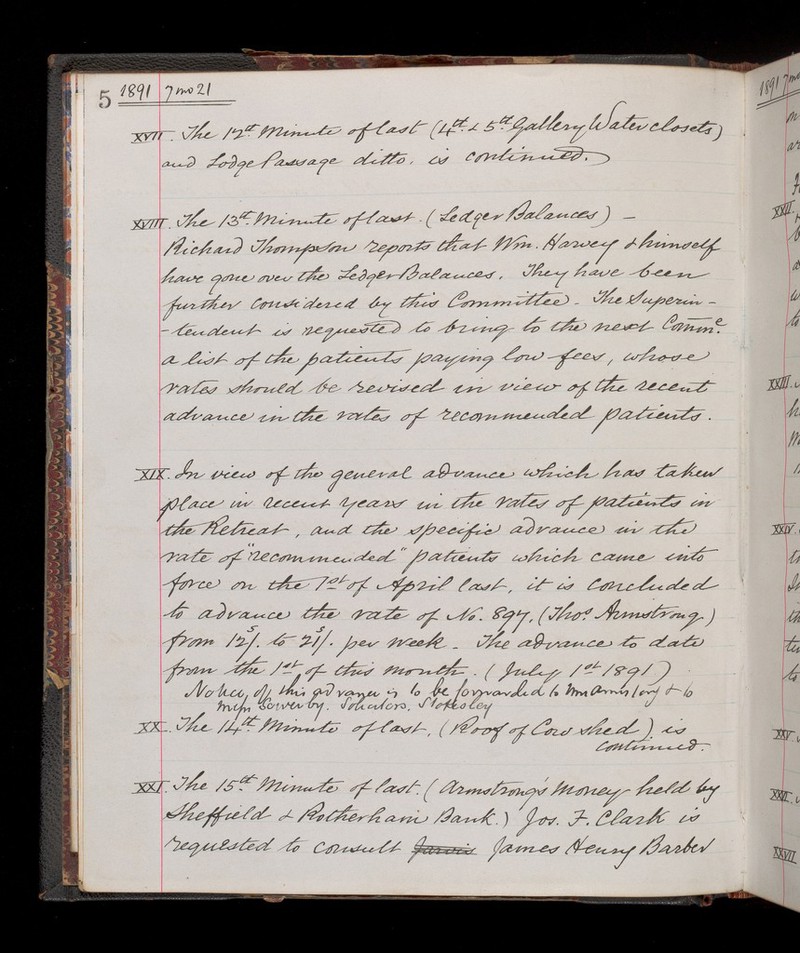 5 1891 7 mo 21
XVII. The 12th Minute of last (4th & 5th Gallery Water closets)
and Lodge Passage ditto. is continued.
XVIII. The 13th Minute of last. (Ledger Balances) –
Richard Thompson reports that Wm. Harvey & himself
have gone over the Ledger Balances. They have been
further considered by this Committee. The Superin-
-tendent is requested to bring to the next Comme.
a list of the patients paying low fees, whose
rates should be revised in view of the recent
advance in the rates of recommended patients.
XIX. In view of the general advance which has taken
place in recent years in the rates of patients in
the Retreat, and the specific advance in the
rate of "recommended" patients which came into
force on the 1st of April last, it is concluded
to advance the rate of No. 897, (Thos. Armstrong)
from 12/s. to 21/s. per week. The advance to date
from the 1st of this month. (July 1st 1891)
Notice of this advance is to be forwarded to Mrs Armstrong & to
Sowerby. Solicitors, Stokesley
XX. The 14th Minute of last, (Roof of Cow shed), is
continued.
XXI. The 15th Minute of last. (Armstrong's Money held by
Sheffield & Rotherham Bank.) Jos. F. Clark is
requested to consult Jarvis James Henry Barber
1891 7 mo
XXII.
XXIII.
XXIV.
XXV.
XXVI.
XXVII